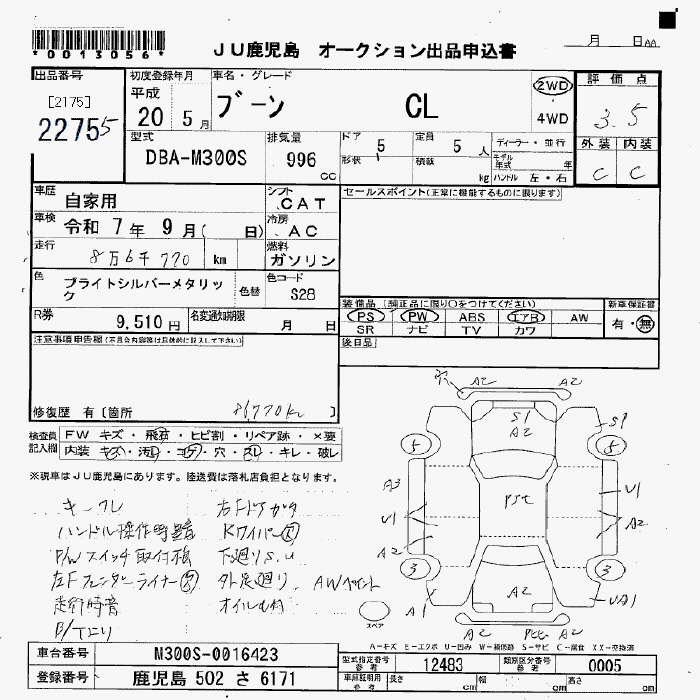 *0013056*
JU鹿児島 オークション出品申込書
月 日AA
出品番号 初度登録年月 車名・グレード 評価点
[2175] 平成 ブーン CL 2WD 3.5
22755 20 5月 4WD
外装 内装
型式 排気量 ドア 5 定員 5人 ディーラー・並行
DBA-M300S 996 cc 形状 積載 kg モデル年式 年 ハンドル 左・右 C C
車歴 自家用 シフト CAT セールスポイント(正常に機能するものに限ります)
車検 令和 7年 9月( 日) 冷房 AC
走行 8万6千770 km 燃料 ガソリン
色 ブライトシルバーメタリック 色替 色コード S28
装備品 (純正品に限り○をつけてください) 新車保証書
R券 9,510円 名変通知期限 月 日
PS PW ABS エアB AW 有・無
SR ナビ TV カワ
注意事項申告欄(不具合内容等は具体的に記入して下さい) 後日品
修復歴 有〔箇所 86,770km 〕
検査員記入欄 FW キズ・飛石・ヒビ割・リペア跡・×要
内装 キズ・汚レ・コゲ・穴・スレ・キレ・破レ
※現車はJU鹿児島にあります。陸送費は落札店負担となります。
穴 A2 A2
S1 A2 S1
5 5
A3 U1 A2 U1 A2
3 3
A2
A1 UA1
A2 A2
キークレ 右Fドアガタ
ハンドル操作時異音
P/Wスイッチ取付
左Fフェンダーライナー
走行時音 オイルもれ
下廻りS.U
外足廻り
AWペイント
スペア
A-キズ E-エクボ U-凹み W-補修跡 S-サビ C-腐食 XX-交換済
車台番号 M300S-0016423 型式指定番号 参考 12483 類別区分番号 参考 0005
登録番号 鹿児島 502 さ 6171 車庫証明用 参考 長さ cm 幅 cm 高さ cm